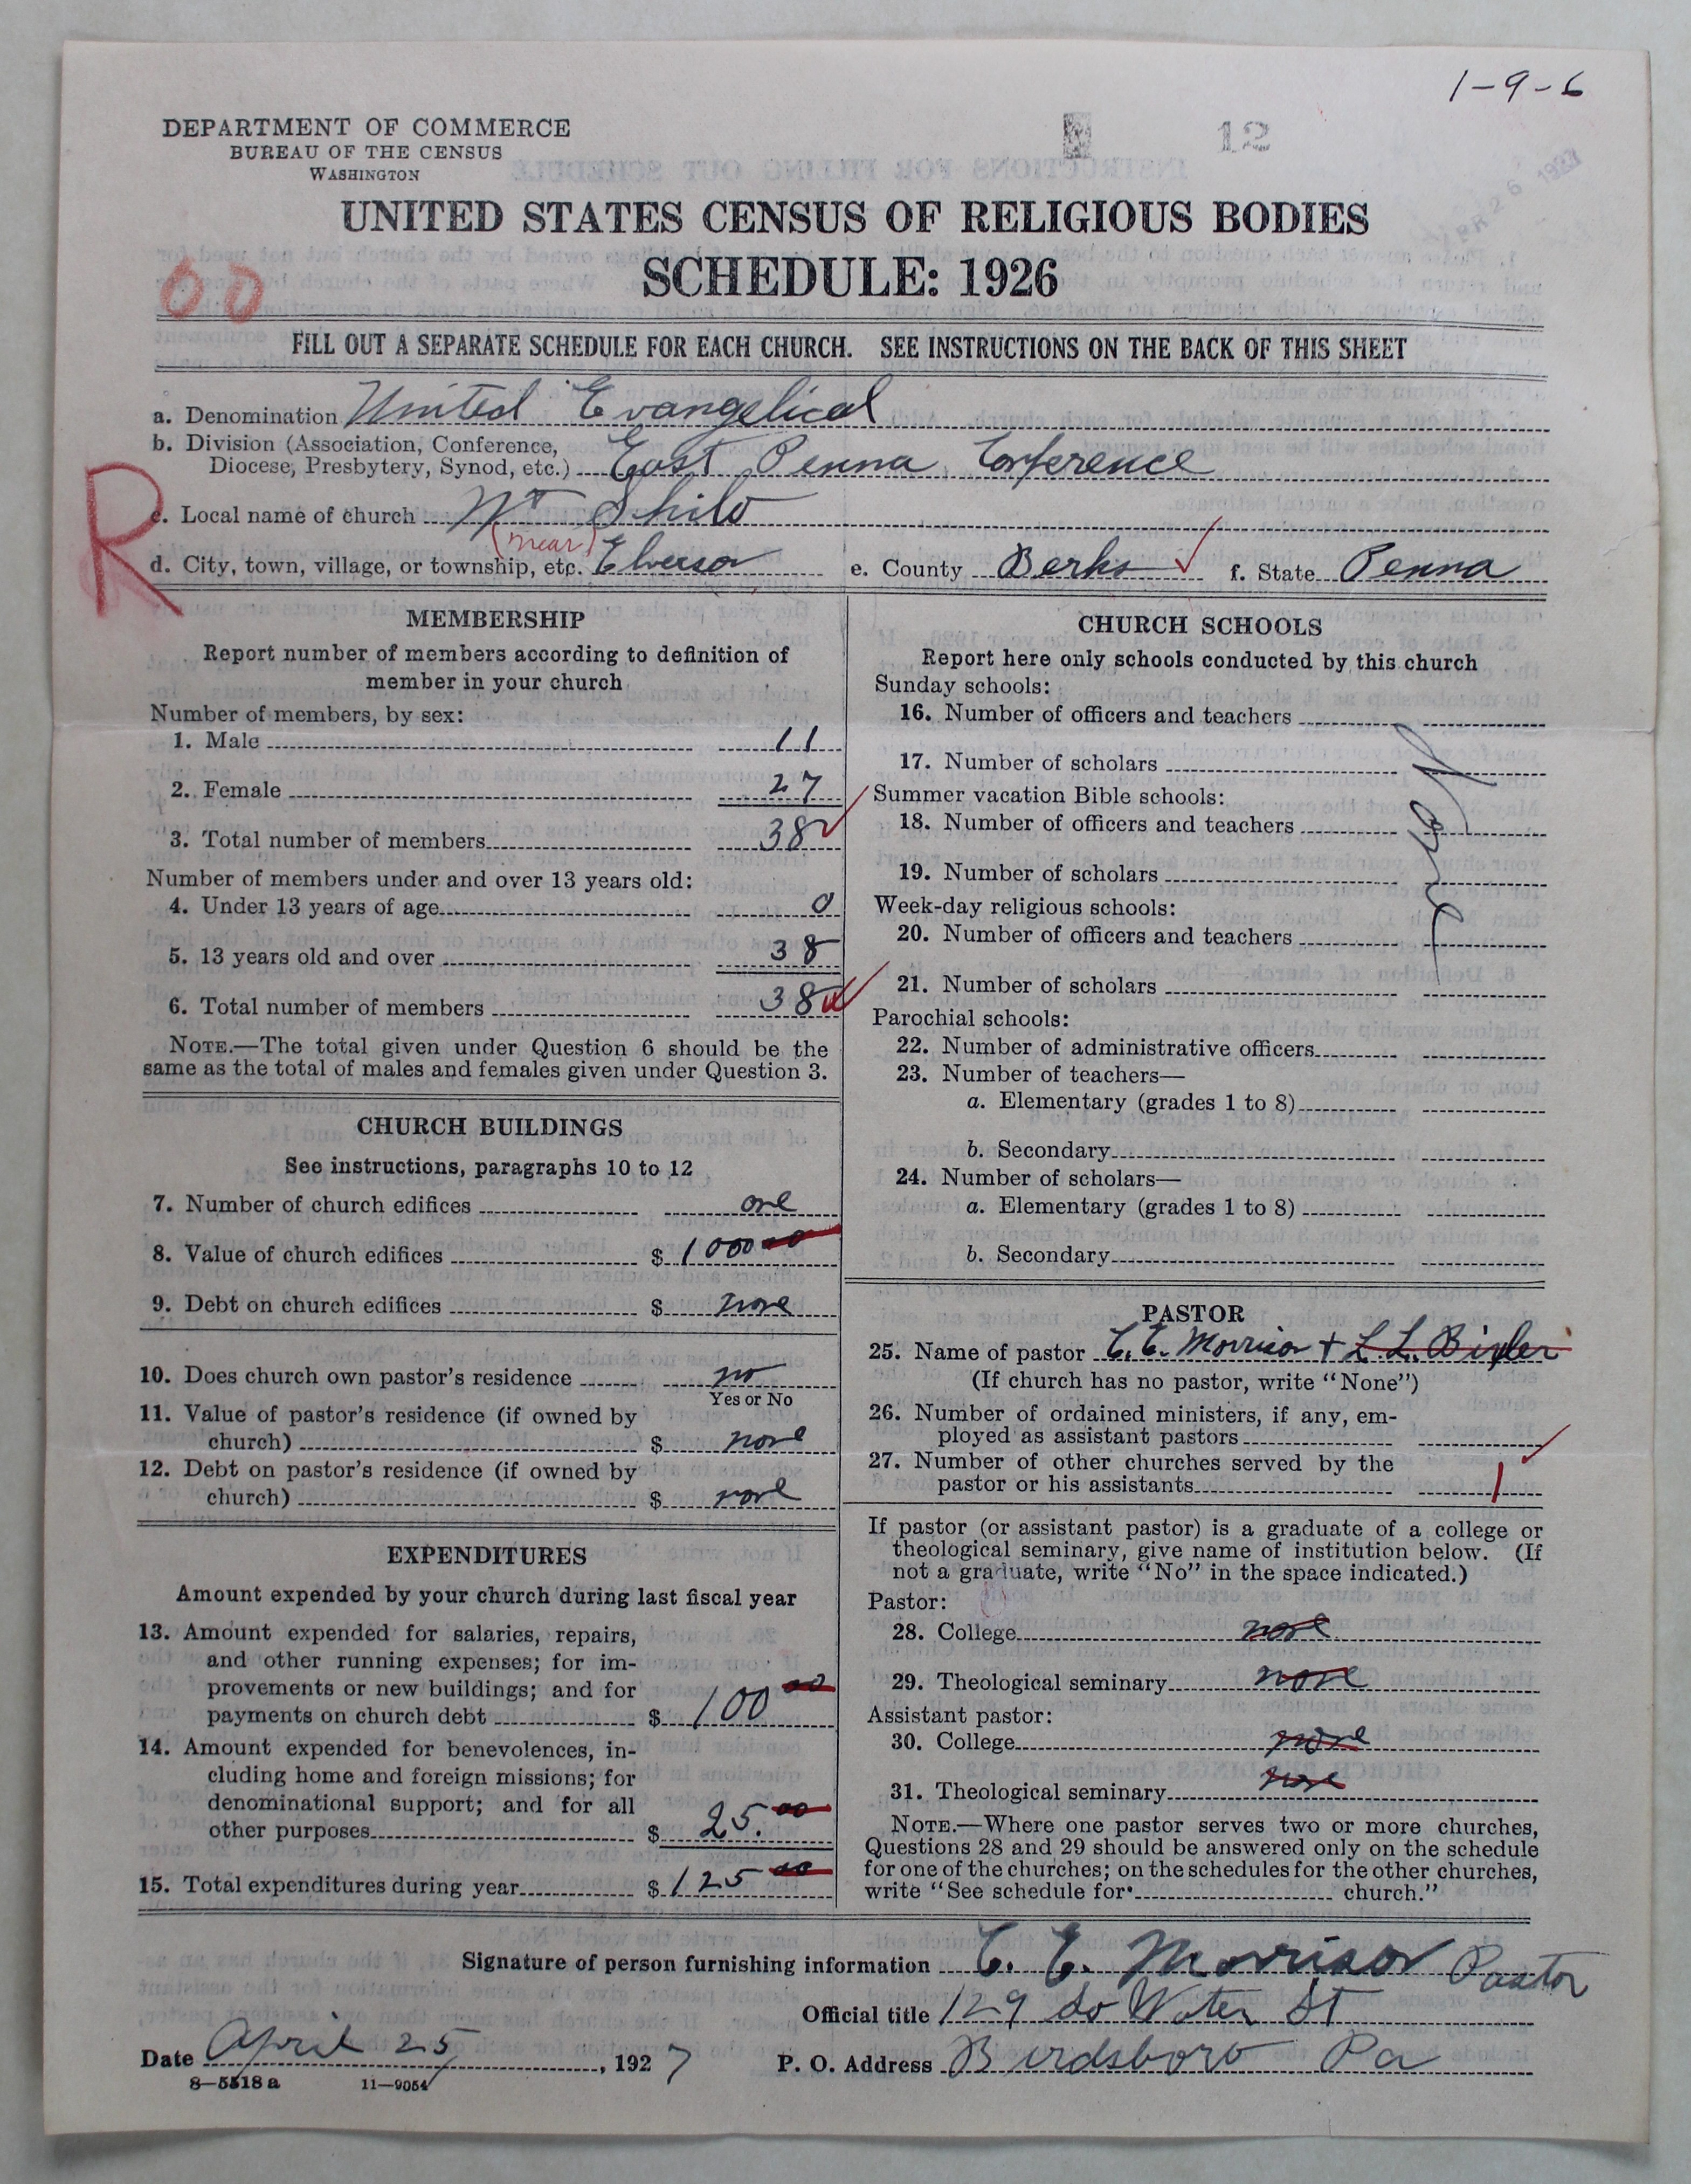 1-9-6
DEPARTMENT OF COMMERCE
BUREAU OF THE CENSUS
WASHINGTON
12
APR 26 1927
UNITED STATES CENSUS OF RELIGIOUS BODIES
SCHEDULE: 1926
00
FILL OUT A SEPARATE SCHEDULE FOR EACH CHURCH. SEE INSTRUCTIONS ON THE BACK OF THIS SHEET
a. Denomination United Evangelical
b. Division (Association, Conference,
Diocese, Presbytery, Synod, etc.) East Penna Conference
R
c. Local name of church Mt Shilo
(near)
d. City, town, village, or township, etc. Elverson e. County Berks f. State Penna
MEMBERSHIP
Report number of members according to definition of
member in your church
Number of members, by sex:
1. Male 11
2. Female 27
3. Total number of members 38
Number of members under and over 13 years old:
4. Under 13 years of age 0
5. 13 years old and over 38
6. Total number of members 38
NOTE.—The total given under Question 6 should be the
same as the total of males and females given under Question 3.
CHURCH BUILDINGS
See instructions, paragraphs 10 to 12
7. Number of church edifices one
8. Value of church edifices $ 1000 00
9. Debt on church edifices $ none
10. Does church own pastor's residence no
Yes or No
11. Value of pastor's residence (if owned by
church) $ none
12. Debt on pastor's residence (if owned by
church) $ none
EXPENDITURES
Amount expended by your church during last fiscal year
13. Amount expended for salaries, repairs,
and other running expenses; for im-
provements or new buildings; and for
payments on church debt $ 100 00
14. Amount expended for benevolences, in-
cluding home and foreign missions; for
denominational support; and for all
other purposes $ 25.00
15. Total expenditures during year $ 125 00
CHURCH SCHOOLS
Report here only schools conducted by this church
Sunday schools:
16. Number of officers and teachers
17. Number of scholars
Summer vacation Bible schools:
18. Number of officers and teachers
19. Number of scholars
Week-day religious schools:
20. Number of officers and teachers
21. Number of scholars
Parochial schools:
22. Number of administrative officers
23. Number of teachers—
a. Elementary (grades 1 to 8)
b. Secondary
24. Number of scholars—
a. Elementary (grades 1 to 8)
b. Secondary
PASTOR
25. Name of pastor C. E. Morrison + L. L. Bixler
(If church has no pastor, write "None")
26. Number of ordained ministers, if any, em-
ployed as assistant pastors
27. Number of other churches served by the
pastor or his assistants 1
If pastor (or assistant pastor) is a graduate of a college or
theological seminary, give name of institution below. (If
not a graduate, write "No" in the space indicated.)
Pastor:
28. College none
29. Theological seminary none
Assistant pastor:
30. College none
31. Theological seminary none
NOTE.—Where one pastor serves two or more churches,
Questions 28 and 29 should be answered only on the schedule
for one of the churches; on the schedules for the other churches,
write "See schedule for church."
Signature of person furnishing information C. E. Morrison Pastor
Official title 129 So Water St
Date April 25, 1927 P. O. Address Birdsboro Pa
8—5518 a 11—9054